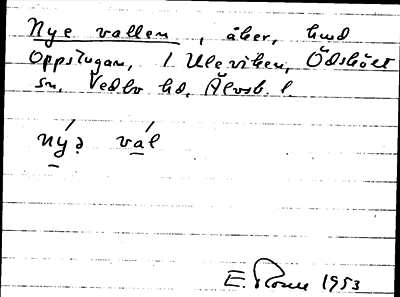 Nye vallen, åker, hmd
Oppstugan, 1 Uleviken, Ödskölt
sn, Vedbo hd, Älvsb. l.
nýə val
E. 1953